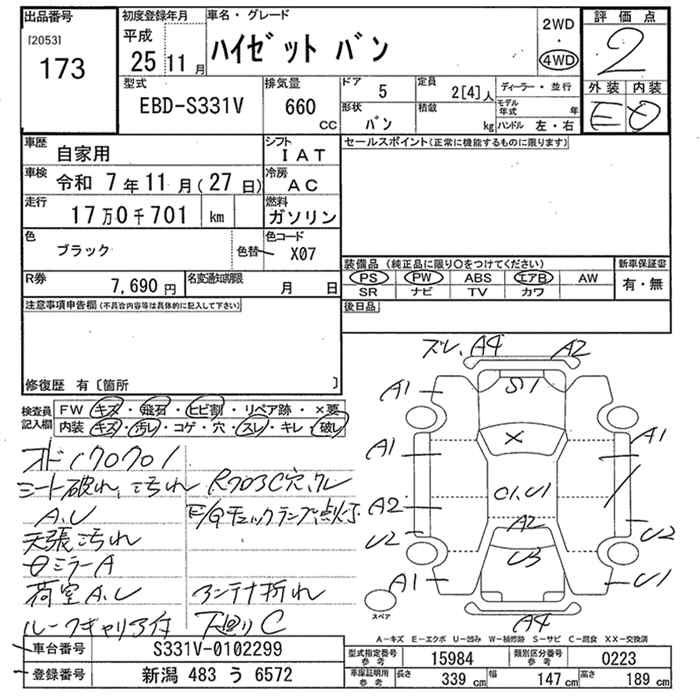 出品番号
[2053]
173
初度登録年月
平成
25 11 月
車名・グレード
ハイゼット バン
2WD
4WD
評価点
2
外装 内装
E D
型式
EBD-S331V
排気量
660
CC
ドア
5
形状
バン
定員
2[4]人
積載
kg
ディーラー・並行
モデル年式 年
ハンドル 左・右
車歴
自家用
シフト
IAT
車検
令和 7年 11月(27日)
冷房
AC
走行
17万0千701 km
燃料
ガソリン
色
ブラック
色替
色コード
X07
R券
7,690円
名変通知期限
月 日
セールスポイント(正常に機能するものに限ります)
装備品(純正品に限り○をつけてください)
PS PW ABS エアB AW
SR ナビ TV カワ
新車保証書
有・無
後日品
注意事項申告欄(不具合内容等は具体的に記入して下さい)
修復歴 有〔箇所 〕
検査員記入欄
FW キズ・飛石・ヒビ割・リペア跡・×要
内装 キズ・汚れ・コゲ・穴・スレ・キレ・破レ
オド170701
シート破れ、汚れ
A、U
天張汚れ
日ミラーA
荷室A、U
ルーフキャリア付
R703C穴、クレ
E/Gチェックランプ点灯
アンテナ折れ
下廻りC
ズレ、A4
A2
A1
S1
A1
A1
X
A1
A2
C1、U1
U2
A2
U2
U3
A1
U1
A4
スペア
A-キズ E-エクボ U-凹み W-補修跡 S-サビ C-腐食 XX-交換済
車台番号
S331V-0102299
登録番号
新潟 483 う 6572
型式指定番号
参考
15984
類別区分番号
参考
0223
車庫証明用
参考
長さ
339 cm
幅
147 cm
高さ
189 cm